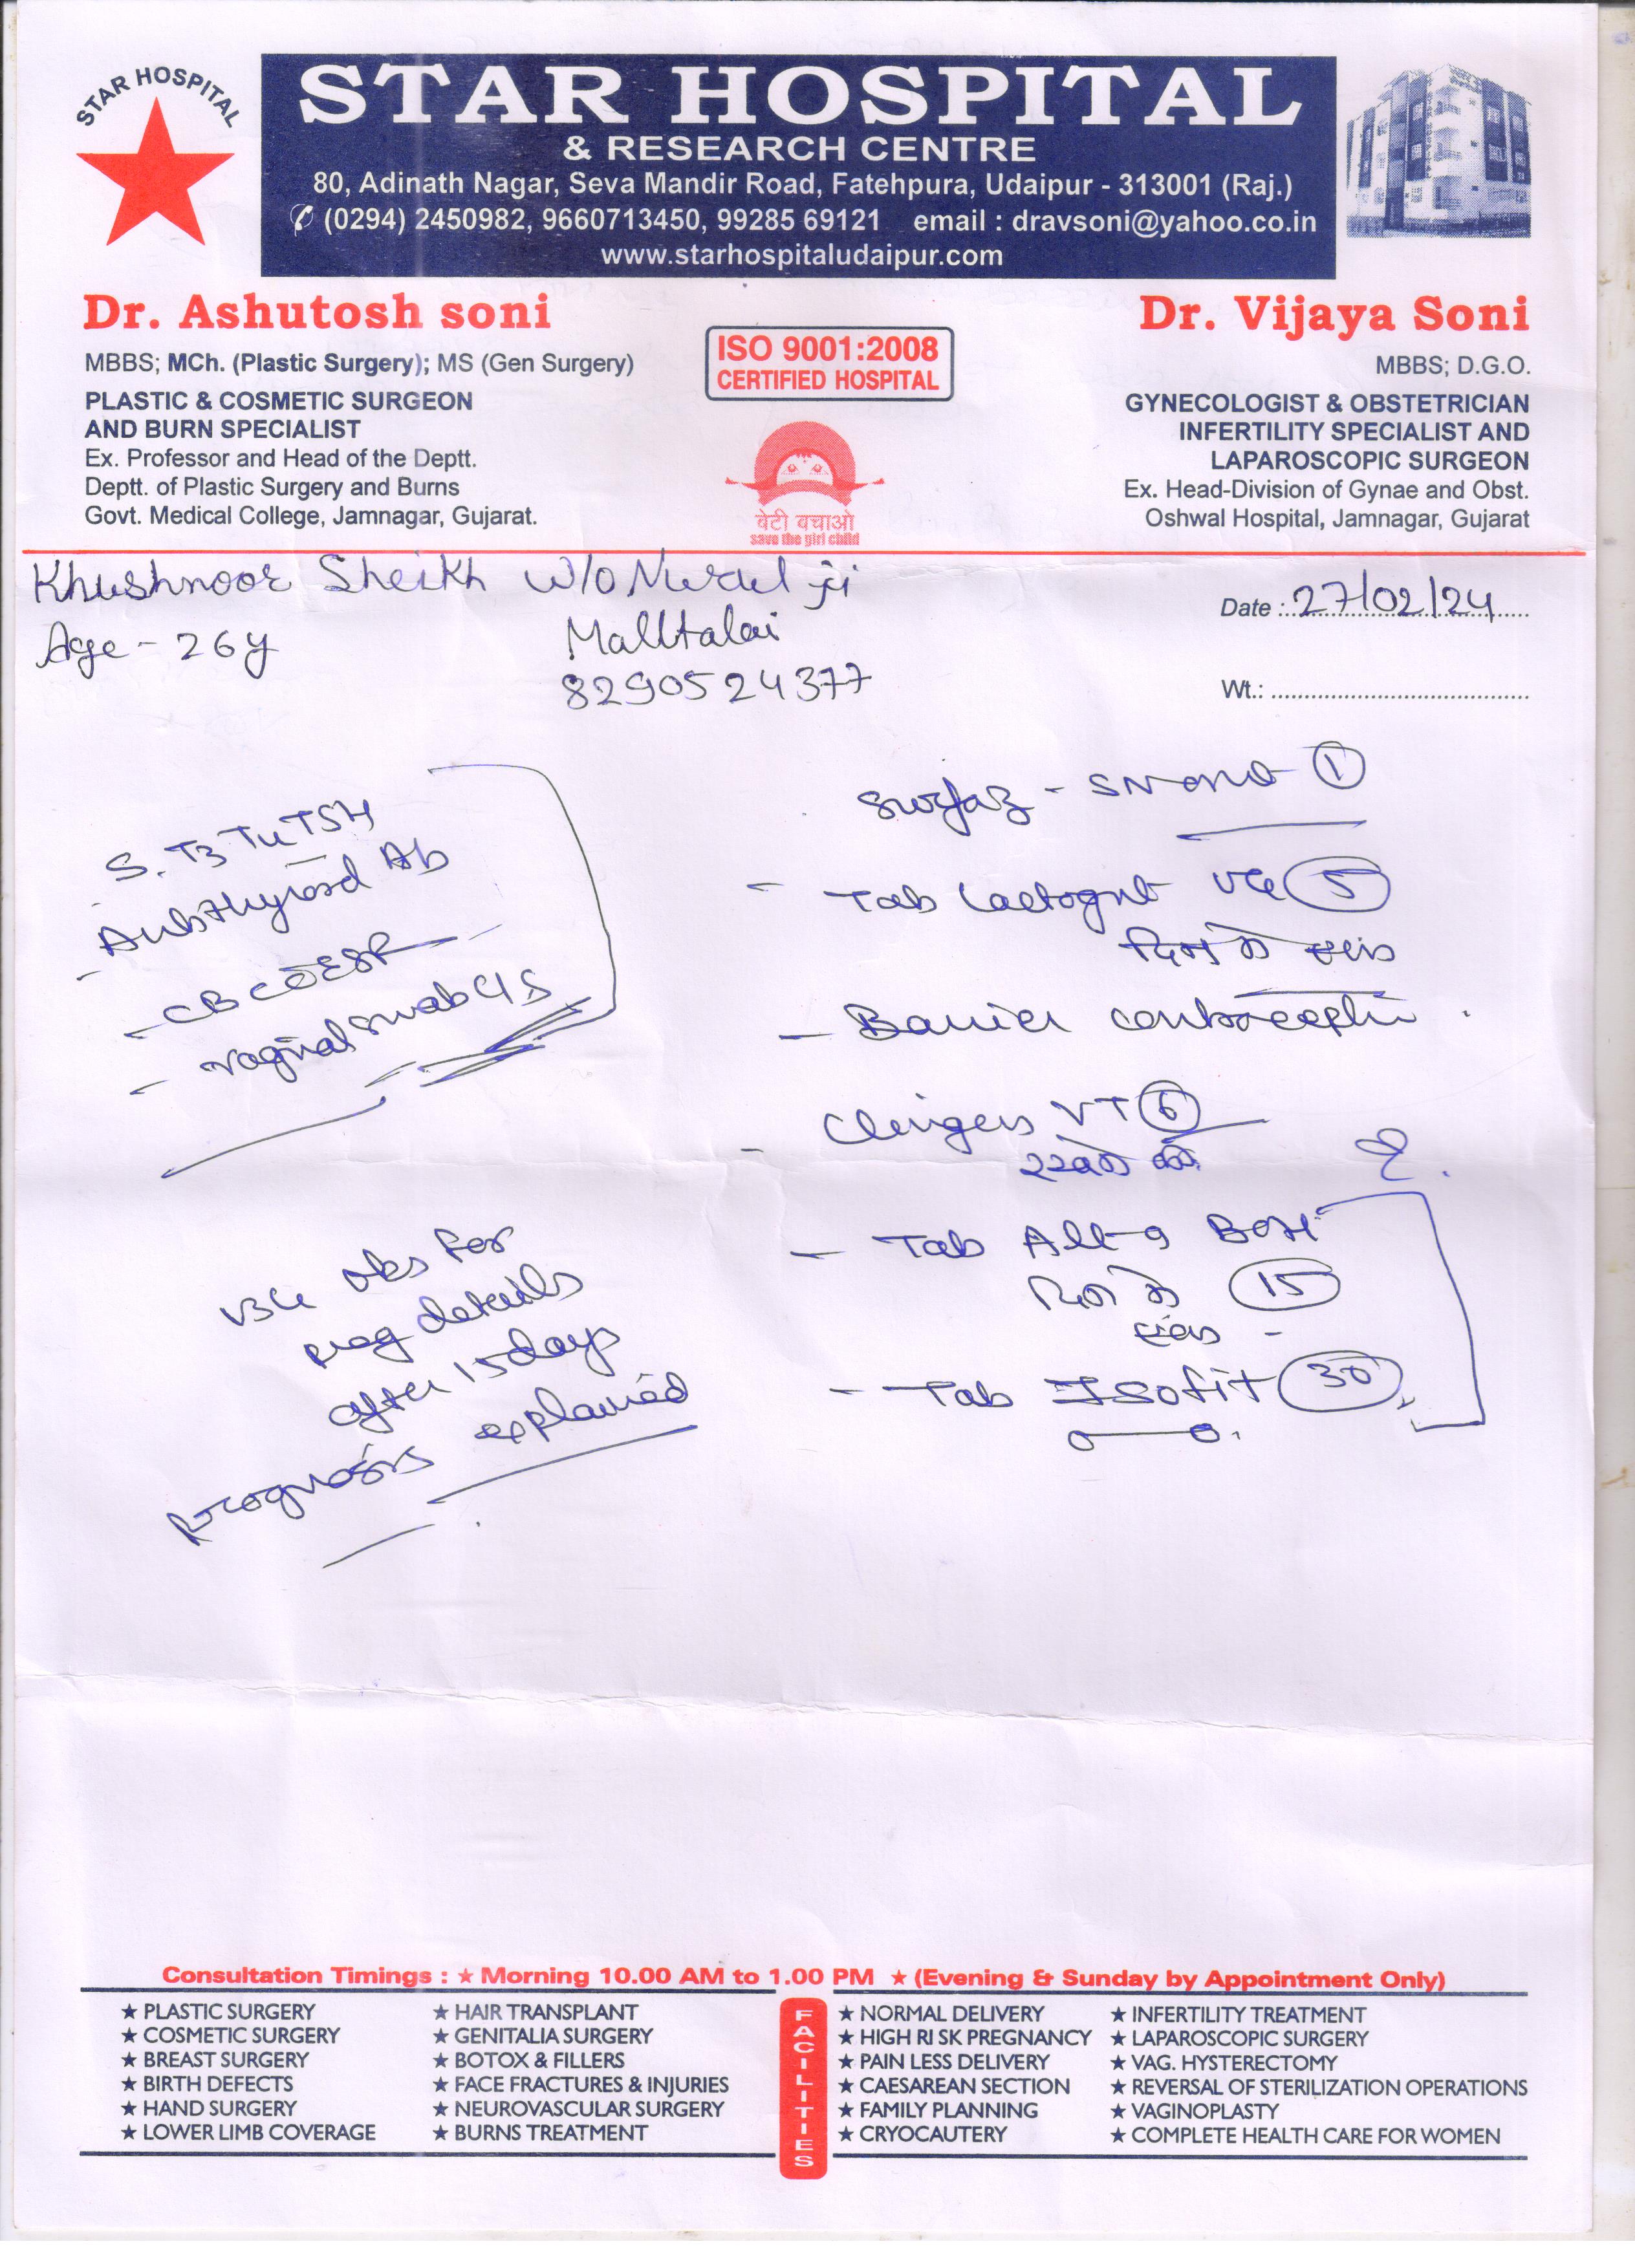 STAR HOSPITAL
STAR HOSPITAL
& RESEARCH CENTRE
80, Adinath Nagar, Seva Mandir Road, Fatehpura, Udaipur - 313001 (Raj.)
✆ (0294) 2450982, 9660713450, 99285 69121 email : dravsoni@yahoo.co.in
www.starhospitaludaipur.com
Dr. Ashutosh soni
MBBS; MCh. (Plastic Surgery); MS (Gen Surgery)
PLASTIC & COSMETIC SURGEON
AND BURN SPECIALIST
Ex. Professor and Head of the Deptt.
Deptt. of Plastic Surgery and Burns
Govt. Medical College, Jamnagar, Gujarat.
ISO 9001:2008
CERTIFIED HOSPITAL
बेटी बचाओ
save the girl child
Dr. Vijaya Soni
MBBS; D.G.O.
GYNECOLOGIST & OBSTETRICIAN
INFERTILITY SPECIALIST AND
LAPAROSCOPIC SURGEON
Ex. Head-Division of Gynae and Obst.
Oshwal Hospital, Jamnagar, Gujarat
Khushnoor Sheikh w/o Nurul ji
Date : 27/02/24
Age - 26y
Malltalai
8290524377
Wt.:
S. T3 T4 TSH
Antithyroid Ab
- CBC ESR
- vaginal swab C/S
Surfaz - SN 1
- Tab VG 5
- Barrier
- Clingen VT 6
रात को
- Tab All-9
15
- Tab Isofit 30
obs for
preg details
after 15 days
prognosis explained
Consultation Timings : ★ Morning 10.00 AM to 1.00 PM ★ (Evening & Sunday by Appointment Only)
★ PLASTIC SURGERY
★ COSMETIC SURGERY
★ BREAST SURGERY
★ BIRTH DEFECTS
★ HAND SURGERY
★ LOWER LIMB COVERAGE
★ HAIR TRANSPLANT
★ GENITALIA SURGERY
★ BOTOX & FILLERS
★ FACE FRACTURES & INJURIES
★ NEUROVASCULAR SURGERY
★ BURNS TREATMENT
FACILITIES
★ NORMAL DELIVERY
★ HIGH RI SK PREGNANCY
★ PAIN LESS DELIVERY
★ CAESAREAN SECTION
★ FAMILY PLANNING
★ CRYOCAUTERY
★ INFERTILITY TREATMENT
★ LAPAROSCOPIC SURGERY
★ VAG. HYSTERECTOMY
★ REVERSAL OF STERILIZATION OPERATIONS
★ VAGINOPLASTY
★ COMPLETE HEALTH CARE FOR WOMEN